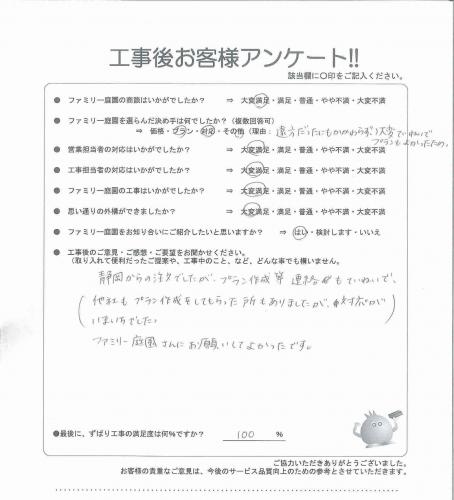 工事後お客様アンケート!!
該当欄に○印をご記入ください。
● ファミリー庭園の商談はいかがでしたか? ⇒ 大変満足・満足・普通・やや不満・大変不満
● ファミリー庭園を選らんだ決め手は何でしたか?(複数回答可)
⇒ 価格・プラン・対応・その他(理由:遠方だったにもかかわらず、大変ていねいで
プランもよかったため。
● 営業担当者の対応はいかがでしたか? ⇒ 大変満足・満足・普通・やや不満・大変不満
● 工事担当者の対応はいかがでしたか? ⇒ 大変満足・満足・普通・やや不満・大変不満
● ファミリー庭園の工事はいかがでしたか? ⇒ 大変満足・満足・普通・やや不満・大変不満
● 思い通りの外構ができましたか? ⇒ 大変満足・満足・普通・やや不満・大変不満
● ファミリー庭園をお知り合いにご紹介したいと思いますか? ⇒ はい・検討します・いいえ
● 工事後のご意見・ご感想・ご要望をお聞かせください。
(取り入れて便利だったご提案や、工事中のこと、など、どんな事でも構いません。
静岡からの注文でしたが、プラン作成等 連絡もていねいで、
(他社もプラン作成をしてもらった所もありましたが、対応が
いまいちでした。
ファミリー庭園さんにお願いしてよかったです。
●最後に、ずばり工事の満足度は何%ですか? 100 %
ご協力いただきありがとうございました。
お客様の貴重なご意見は、今後のサービス品質向上のための参考とさせていただきます。